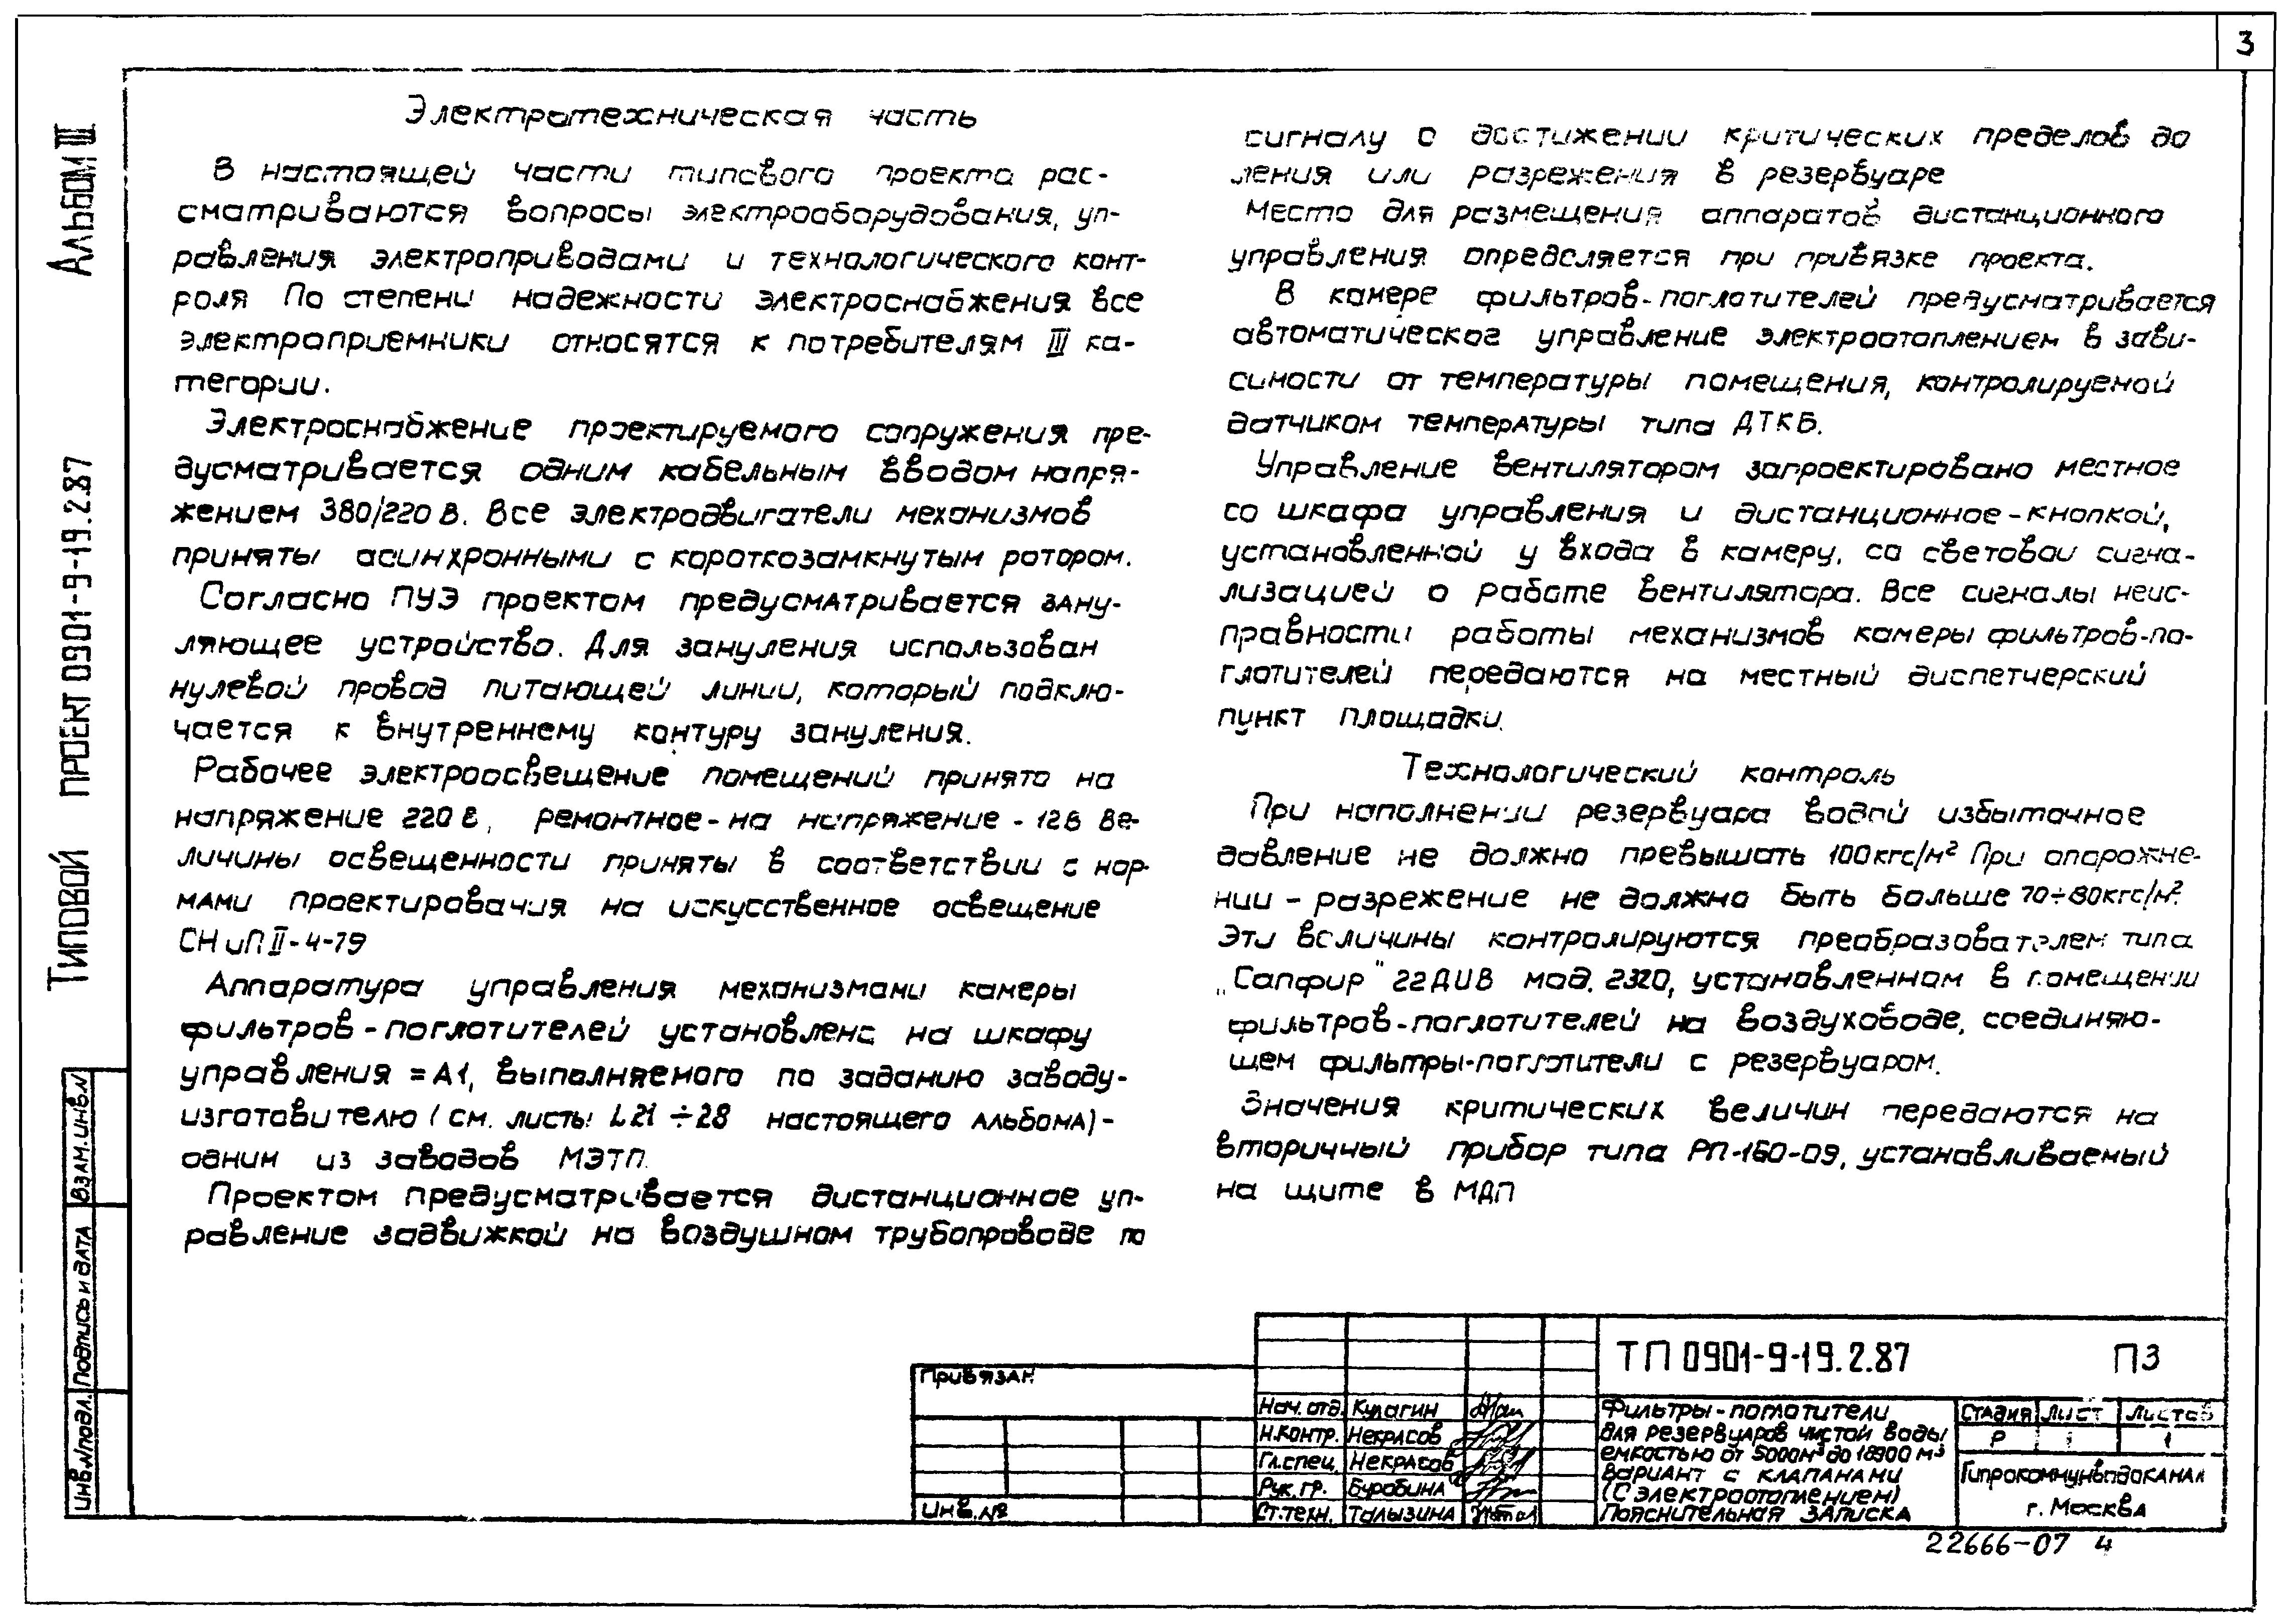 3
Альбом III
Типовой проект 0901-9-19.2.87
Электротехническая часть
В настоящей части типового проекта рас-
сматриваются вопросы электрооборудования, уп-
равления электроприводами и технологического конт-
роля По степени надежности электроснабжения все
электроприемники относятся к потребителям III ка-
тегории.
Электроснабжение проектируемого сооружения пре-
дусматривается одним кабельным вводом напря-
жением 380/220 В. Все электродвигатели механизмов
приняты асинхронными с короткозамкнутым ротором.
Согласно ПУЭ проектом предусматривается зану-
ляющее устройство. Для зануления использован
нулевой провод питающей линии, который подклю-
чается к внутреннему контуру зануления.
Рабочее электроосвещение помещений принято на
напряжение 220 В, ремонтное - на напряжение - 12В Ве-
личины освещенности приняты в соответствии с нор-
мами проектирования на искусственное освещение
СНиП II-4-79
Аппаратура управления механизмами камеры
фильтров-поглотителей установлена на шкафу
управления =А1, выполняемого по заданию заводу-
изготовителю (см. листы L21÷28 настоящего альбома)-
одним из заводов МЭТП.
Проектом предусматривается дистанционное уп-
равление задвижкой на воздушном трубопроводе по
сигналу о достижении критических пределов да
ления или разрежения в резервуаре
Место для размещения аппаратов дистанционного
управления определяется при привязке проекта.
В камере фильтров-поглотителей предусматривается
автоматическое управление электроотоплением в зави-
симости от температуры помещения, контролируемой
датчиком температуры типа ДТКБ.
Управление вентилятором запроектировано местное
со шкафа управления и дистанционное-кнопкой,
установленной у входа в камеру, со световой сигна-
лизацией о работе вентилятора. Все сигналы неис-
правности работы механизмов камеры фильтров-по-
глотителей передаются на местный диспетчерский
пункт площадки.
Технологический контроль
При наполнении резервуара водой избыточное
давление не должно превышать 100кгс/м² При опорожне-
нии - разрежение не должно быть больше 70÷80кгс/м².
Эти величины контролируются преобразователем типа
„Сапфир" 22ДИВ мод. 2320, установленном в помещении
фильтров-поглотителей на воздуховоде, соединяю-
щем фильтры-поглотители с резервуаром.
Значения критических величин передаются на
вторичный прибор типа РП-160-09, устанавливаемый
на щите в МДП
Взам.инв.N
Подпись и дата
Инв.N подл.
Привязан
Инв.№
Нач. отд. Кулагин
Н.контр. Некрасов
Гл.спец. Некрасов
Рук.гр. Буробина
Ст.техн. Талызина
ТП 0901-9-19.2.87 ПЗ
Фильтры-поглотители
для резервуаров чистой воды
емкостью от 5000м³ до 18900 м³
Вариант с клапанами
(С электроотоплением)
Пояснительная записка
Стадия Лист Листов
Р 1 1
Гипрокоммунводоканал
г. Москва
22666-07 4